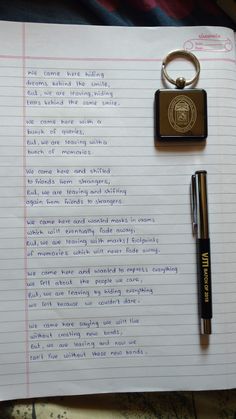 We came here hiding
dreams behind the smile,
But, we are leaving, hiding
tears behind the same smile.
We came here with a
bunch of queries,
But, we are leaving with a
bunch of memories.
We came here and shifted
to friends from strangers,
But, we are leaving and shifting
again from friends to strangers.
We came here and wanted marks in exams
which will eventually fade away,
But, we are leaving with marks/footprints
of memories which will never fade away.
We came here and wanted to express everything
we felt about the people we care,
But, we are leaving by hiding everything
we felt because we couldn't dare.
We came here saying we will live
without creating new bonds,
But, we are leaving and now we
can't live without these new bonds.
VJTI BATCH OF 2018